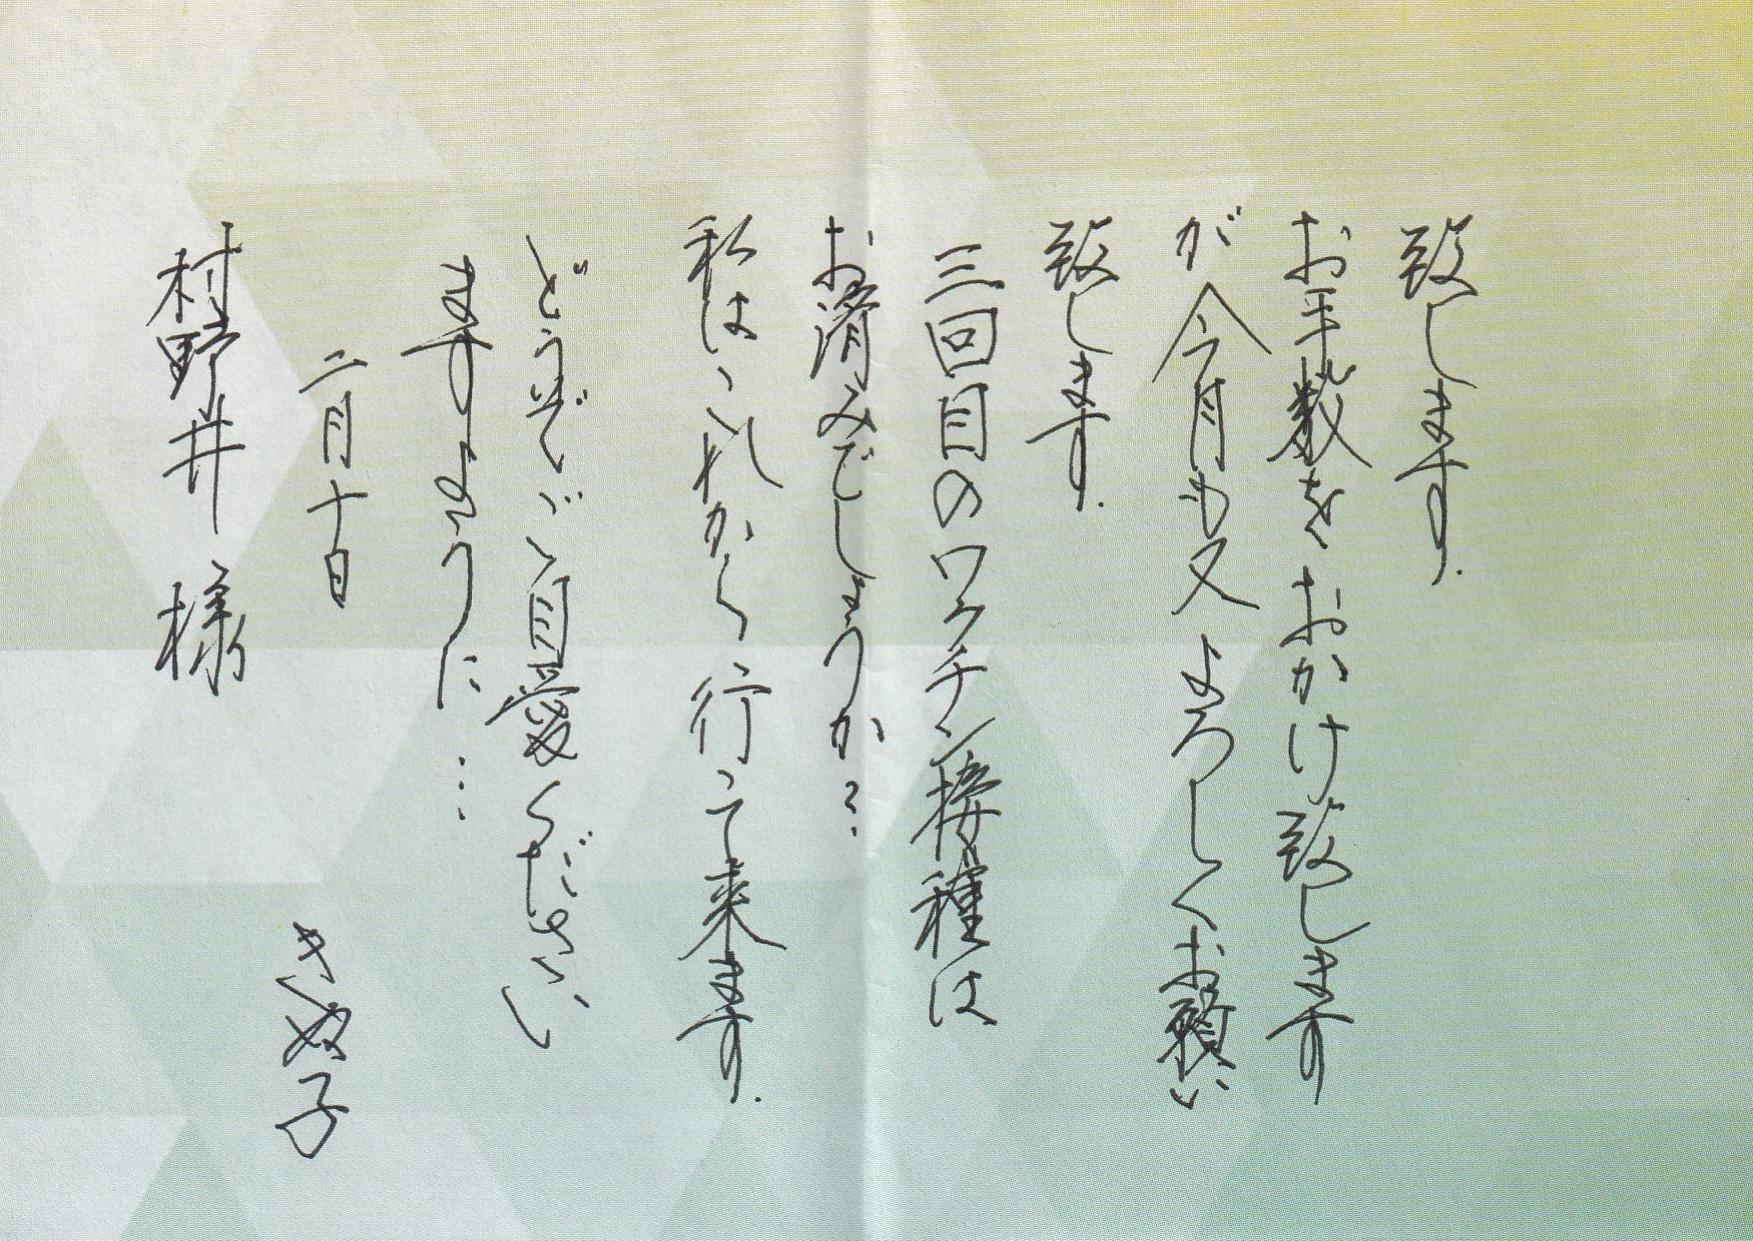 致します.
お手数をおかけ致します
が今月も又よろしくお願い
致します.
三回目のワクチン接種は
お済みでしょうか?
私はこれから行って来ます.
どうぞご自愛ください
ますように…
二月十日
きぬ子
村野井様